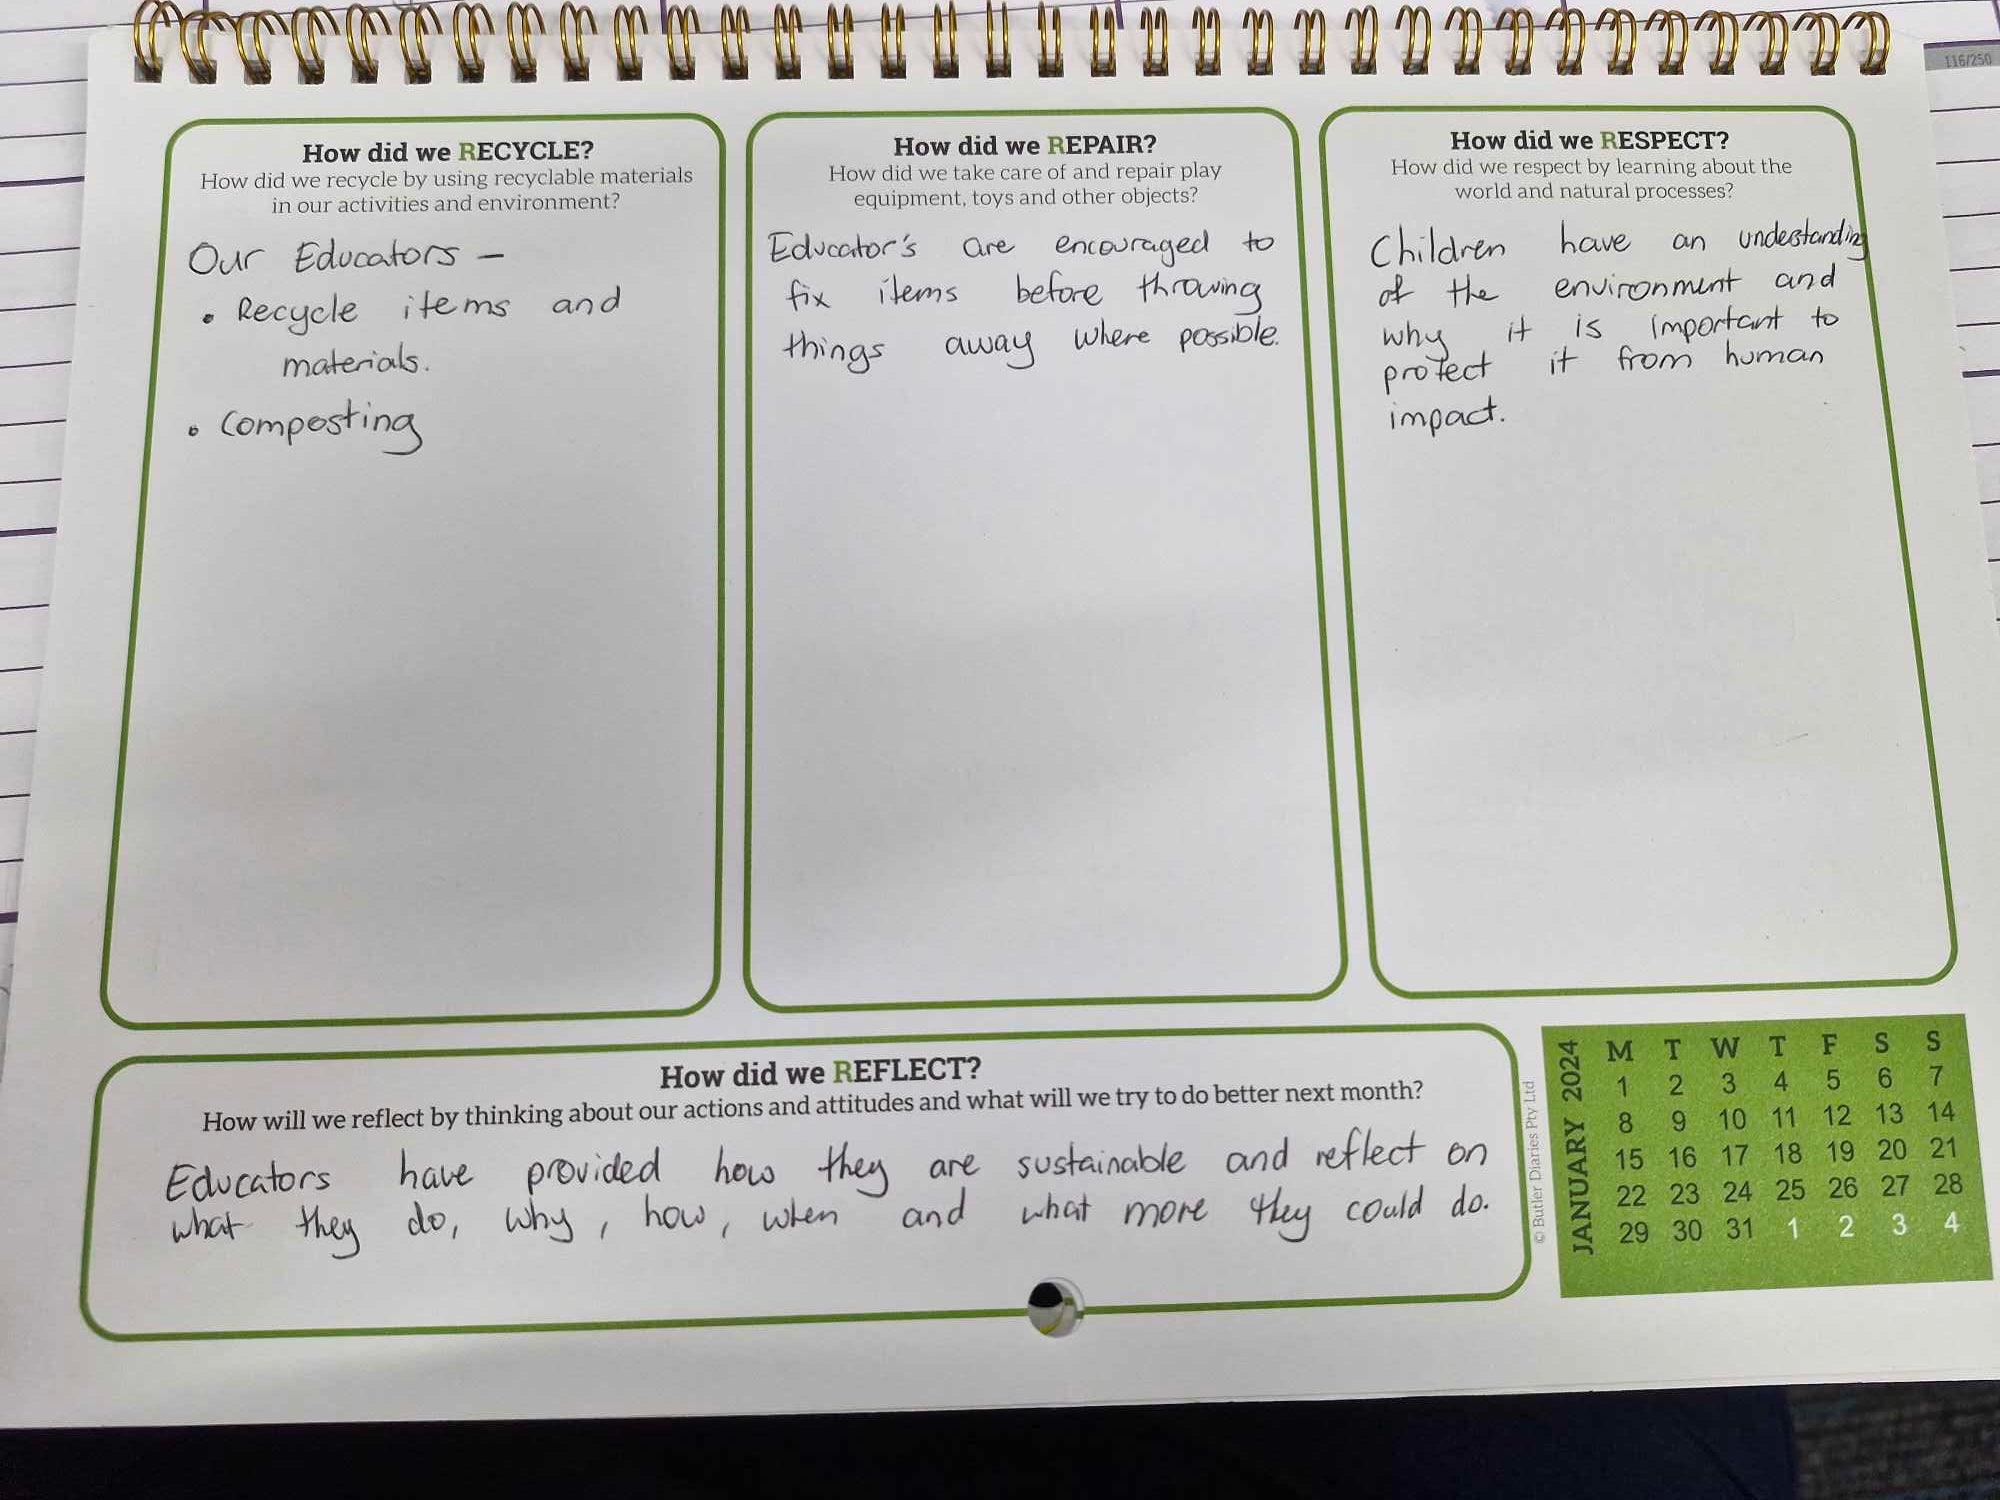 116/250
How did we RECYCLE?
How did we recycle by using recyclable materials
in our activities and environment?
Our Educators –
• Recycle items and
materials.
• Composting
How did we REPAIR?
How did we take care of and repair play
equipment, toys and other objects?
Educator's are encouraged to
fix items before throwing
things away where possible.
How did we RESPECT?
How did we respect by learning about the
world and natural processes?
Children have an understanding
of the environment and
why it is important to
protect it from human
impact.
How did we REFLECT?
How will we reflect by thinking about our actions and attitudes and what will we try to do better next month?
Educators have provided how they are sustainable and reflect on
what they do, why, how, when and what more they could do.
© Butler Diaries Pty Ltd
JANUARY 2024
M T W T F S S
1 2 3 4 5 6 7
8 9 10 11 12 13 14
15 16 17 18 19 20 21
22 23 24 25 26 27 28
29 30 31 1 2 3 4